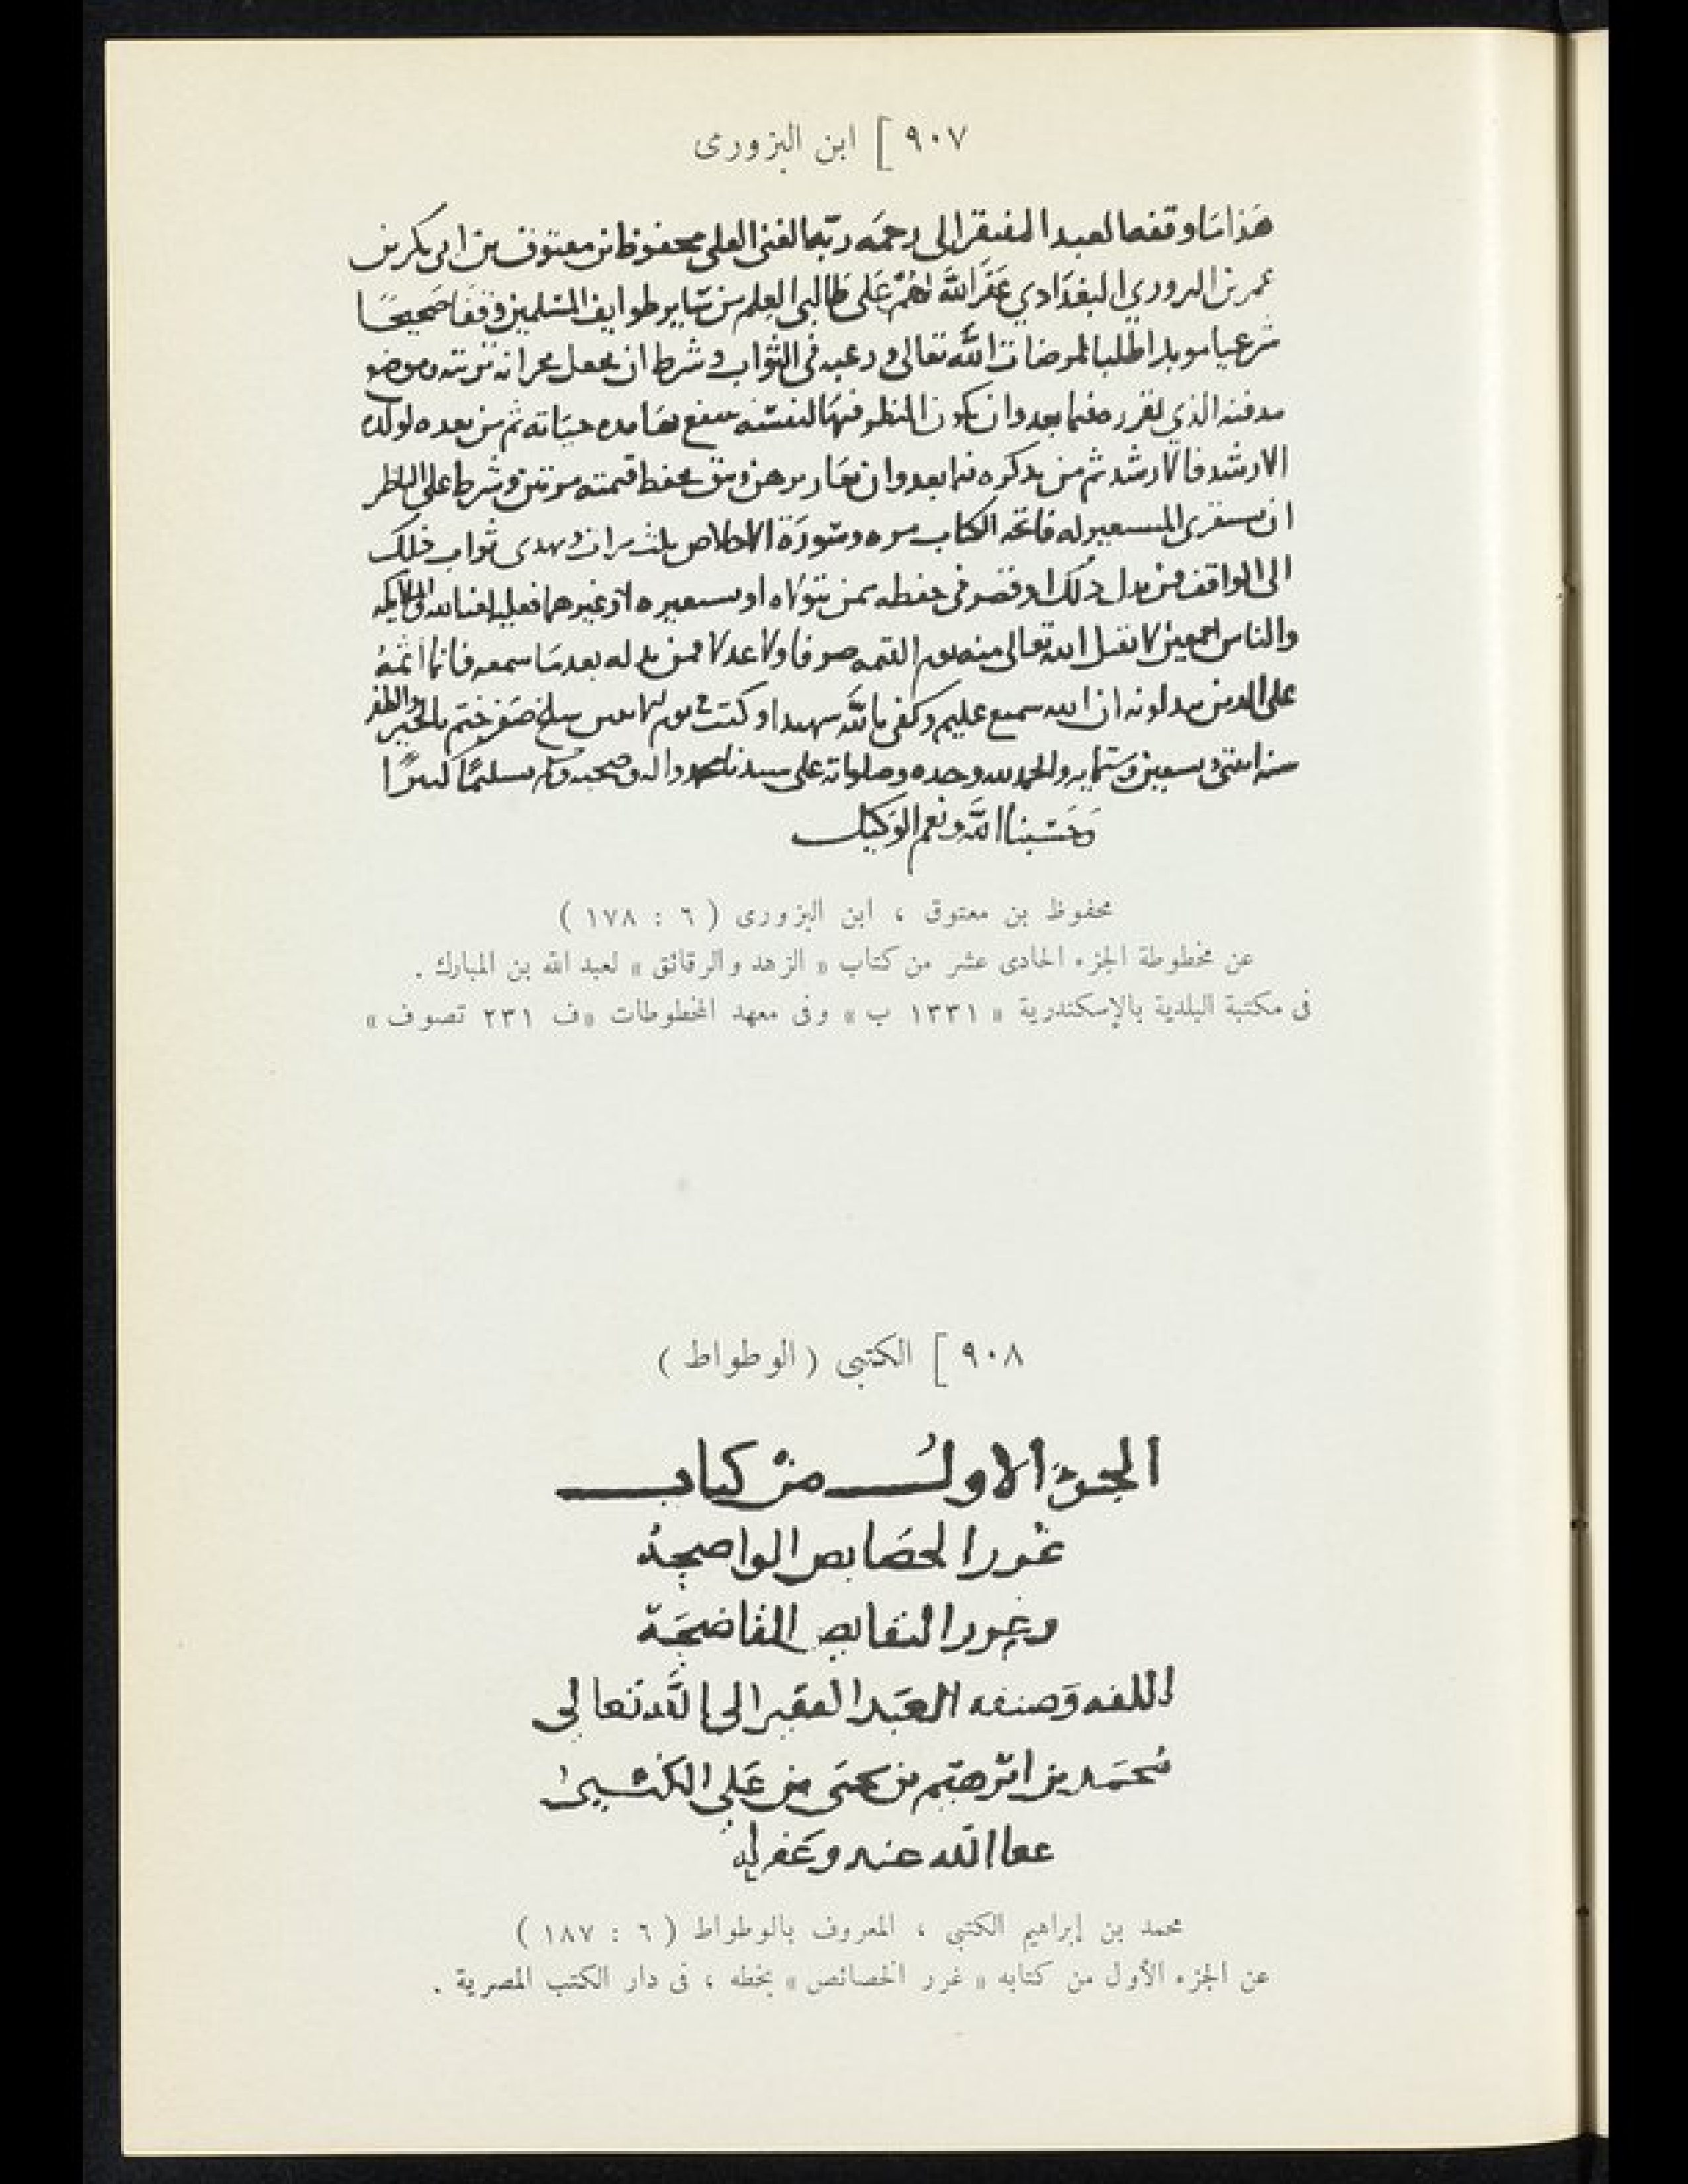 ٩٠٧ [ ابن البزورى
هذا ما وقفه العبد المفتقر الى رحمه ربه الغنى العلى محفوظ بن معتوق بن ابى بكر بن
عمر بن البزوري البغدادي غفر الله لهم على طالبى العلم من ساير طوايف المسلمين وقفا صحيحا
شرعيا موبدا طلبا لمرضات الله تعالى ورغبه فى الثواب وشرط ان يجعل بخزانه تربته وموضع
مدفنه الذي يقرر فيما بعد وان يكون النظر فيها لنفسه ينتفع بها مده حياته ثم من بعده لولده
الارشد فالارشد ثم من يذكره فيما بعد وان يعار برهن وثيق يحفظ قيمته مرتين وشرط على الناظر
ان يستقرى المستعير له فاتحه الكتاب مره وسورة الاخلاص ثلث مرات ويهدى ثواب ذلك
الى الواقف فمن بدل ذلك او قصر فى حفظه ممن يتولاه او يستعيره او غيرهما فعليه لعنة الله والملايكه
والناس اجمعين لا تقبل الله تعالى منه يوم القيمه صرفا ولا عدلا فمن بدله بعد ما سمعه فانما اثمه
على الذين يبدلونه ان الله سميع عليم وكفى بالله شهيدا وكتب فى يوم الخميس سلخ صفر ختم بالخير والظفر
سنه اثنتى وتسعين وستمايه والحمد لله وحده وصلواته على سيدنا محمد واله وصحبه وسلم تسليمًا كثيرًا
وحسبنا الله ونعم الوكيل
محفوظ بن معتوق ، ابن البزورى ( ٦ : ١٧٨ )
عن مخطوطة الجزء الحادى عشر من كتاب « الزهد والرقائق » لعبد الله بن المبارك .
فى مكتبة البلدية بالإسكندرية « ١٣٣١ ب » وفى معهد المخطوطات «ف ٢٣١ تصوف »
٩٠٨ [ الكتبى ( الوطواط )
الجزء الاول من كتاب
غرر الخصايص الواضحة
وعرر النقايص الفاضحة
الفه وصنفه العبد الفقير الى الله تعالى
محمد بن ابرهيم بن يحيى بن على الكتبى
عفا الله عنه وغفر له
محمد بن إبراهيم الكتبي ، المعروف بالوطواط ( ٦ : ١٨٧ )
عن الجزء الأول من كتابه « غرر الخصائص » بخطه ، فى دار الكتب المصرية .